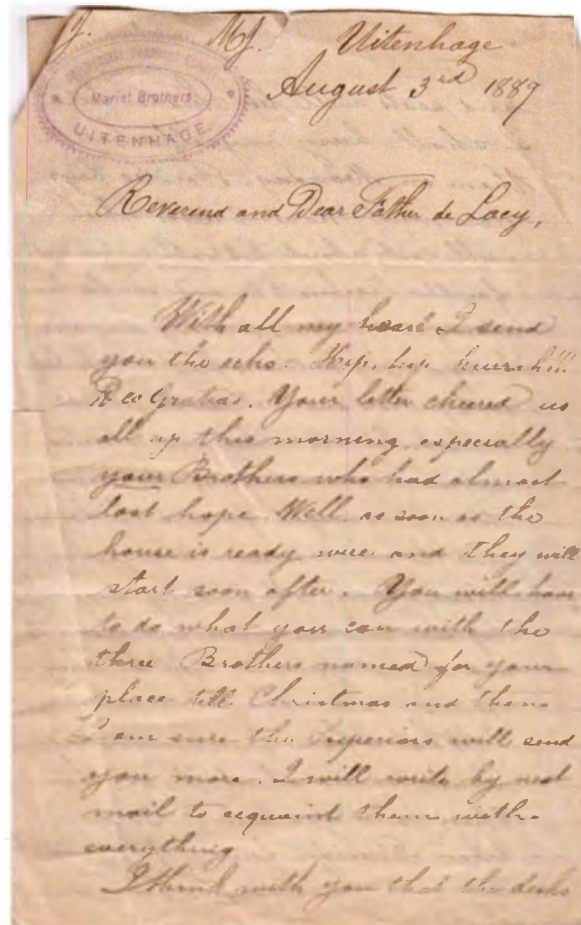 J. MJ. Uitenhage
August 3rd 1889
Marist Brothers
UITENHAGE
Reverend and Dear Father de Lacy,
With all my heart I send
you the echo. Hip, hip hurrah!!!
Deo Gratias. Your letter cheered us
all up this morning, especially
your Brothers who had almost
lost hope. Well as soon as the
house is ready wire and they will
start soon after. You will have
to do what you can with the
three Brothers named for your
place till Christmas and then
I am sure the Superiors will send
you more. I will write by next
mail to acquaint them with
everything
I think with you that the desks